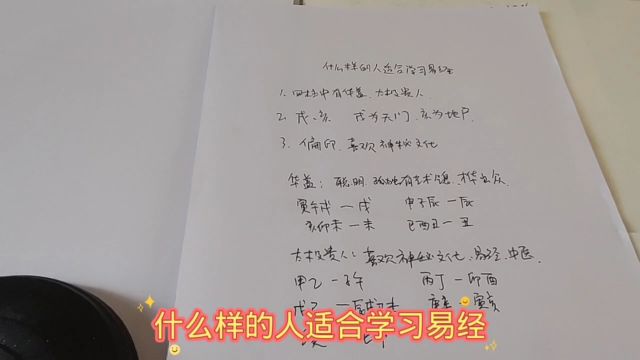 什么样的人适合学习易经
1. 四柱中有华盖、太极贵人
2. 戌、亥 戌为天门,亥为地户
3. 偏印,喜欢神秘文化
华盖:聪明、孤独有艺术 、 众
寅午戌一戌 申子辰一辰
亥卯未一未 巳酉丑一丑
太极贵人:喜欢神秘文化、易经、中医
甲乙一子午 丙丁一卯酉
寅亥
什么样的人适合学习易经